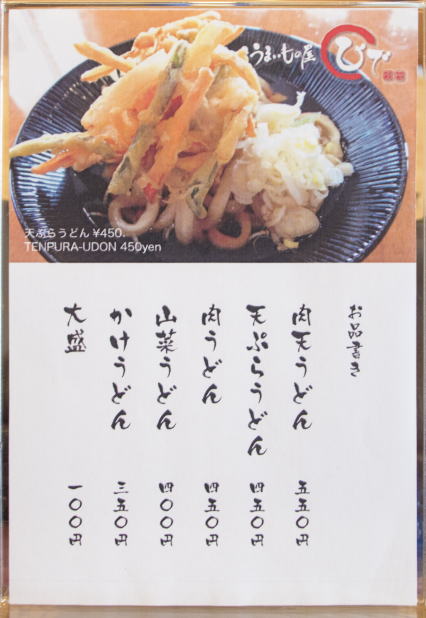 うまいもの屋
ひで
天ぷらうどん ¥450.
TENPURA-UDON 450yen
お品書き
肉天うどん 五五〇円
天ぷらうどん 四五〇円
肉うどん 四五〇円
山菜うどん 四〇〇円
かけうどん 三五〇円
大盛 一〇〇円